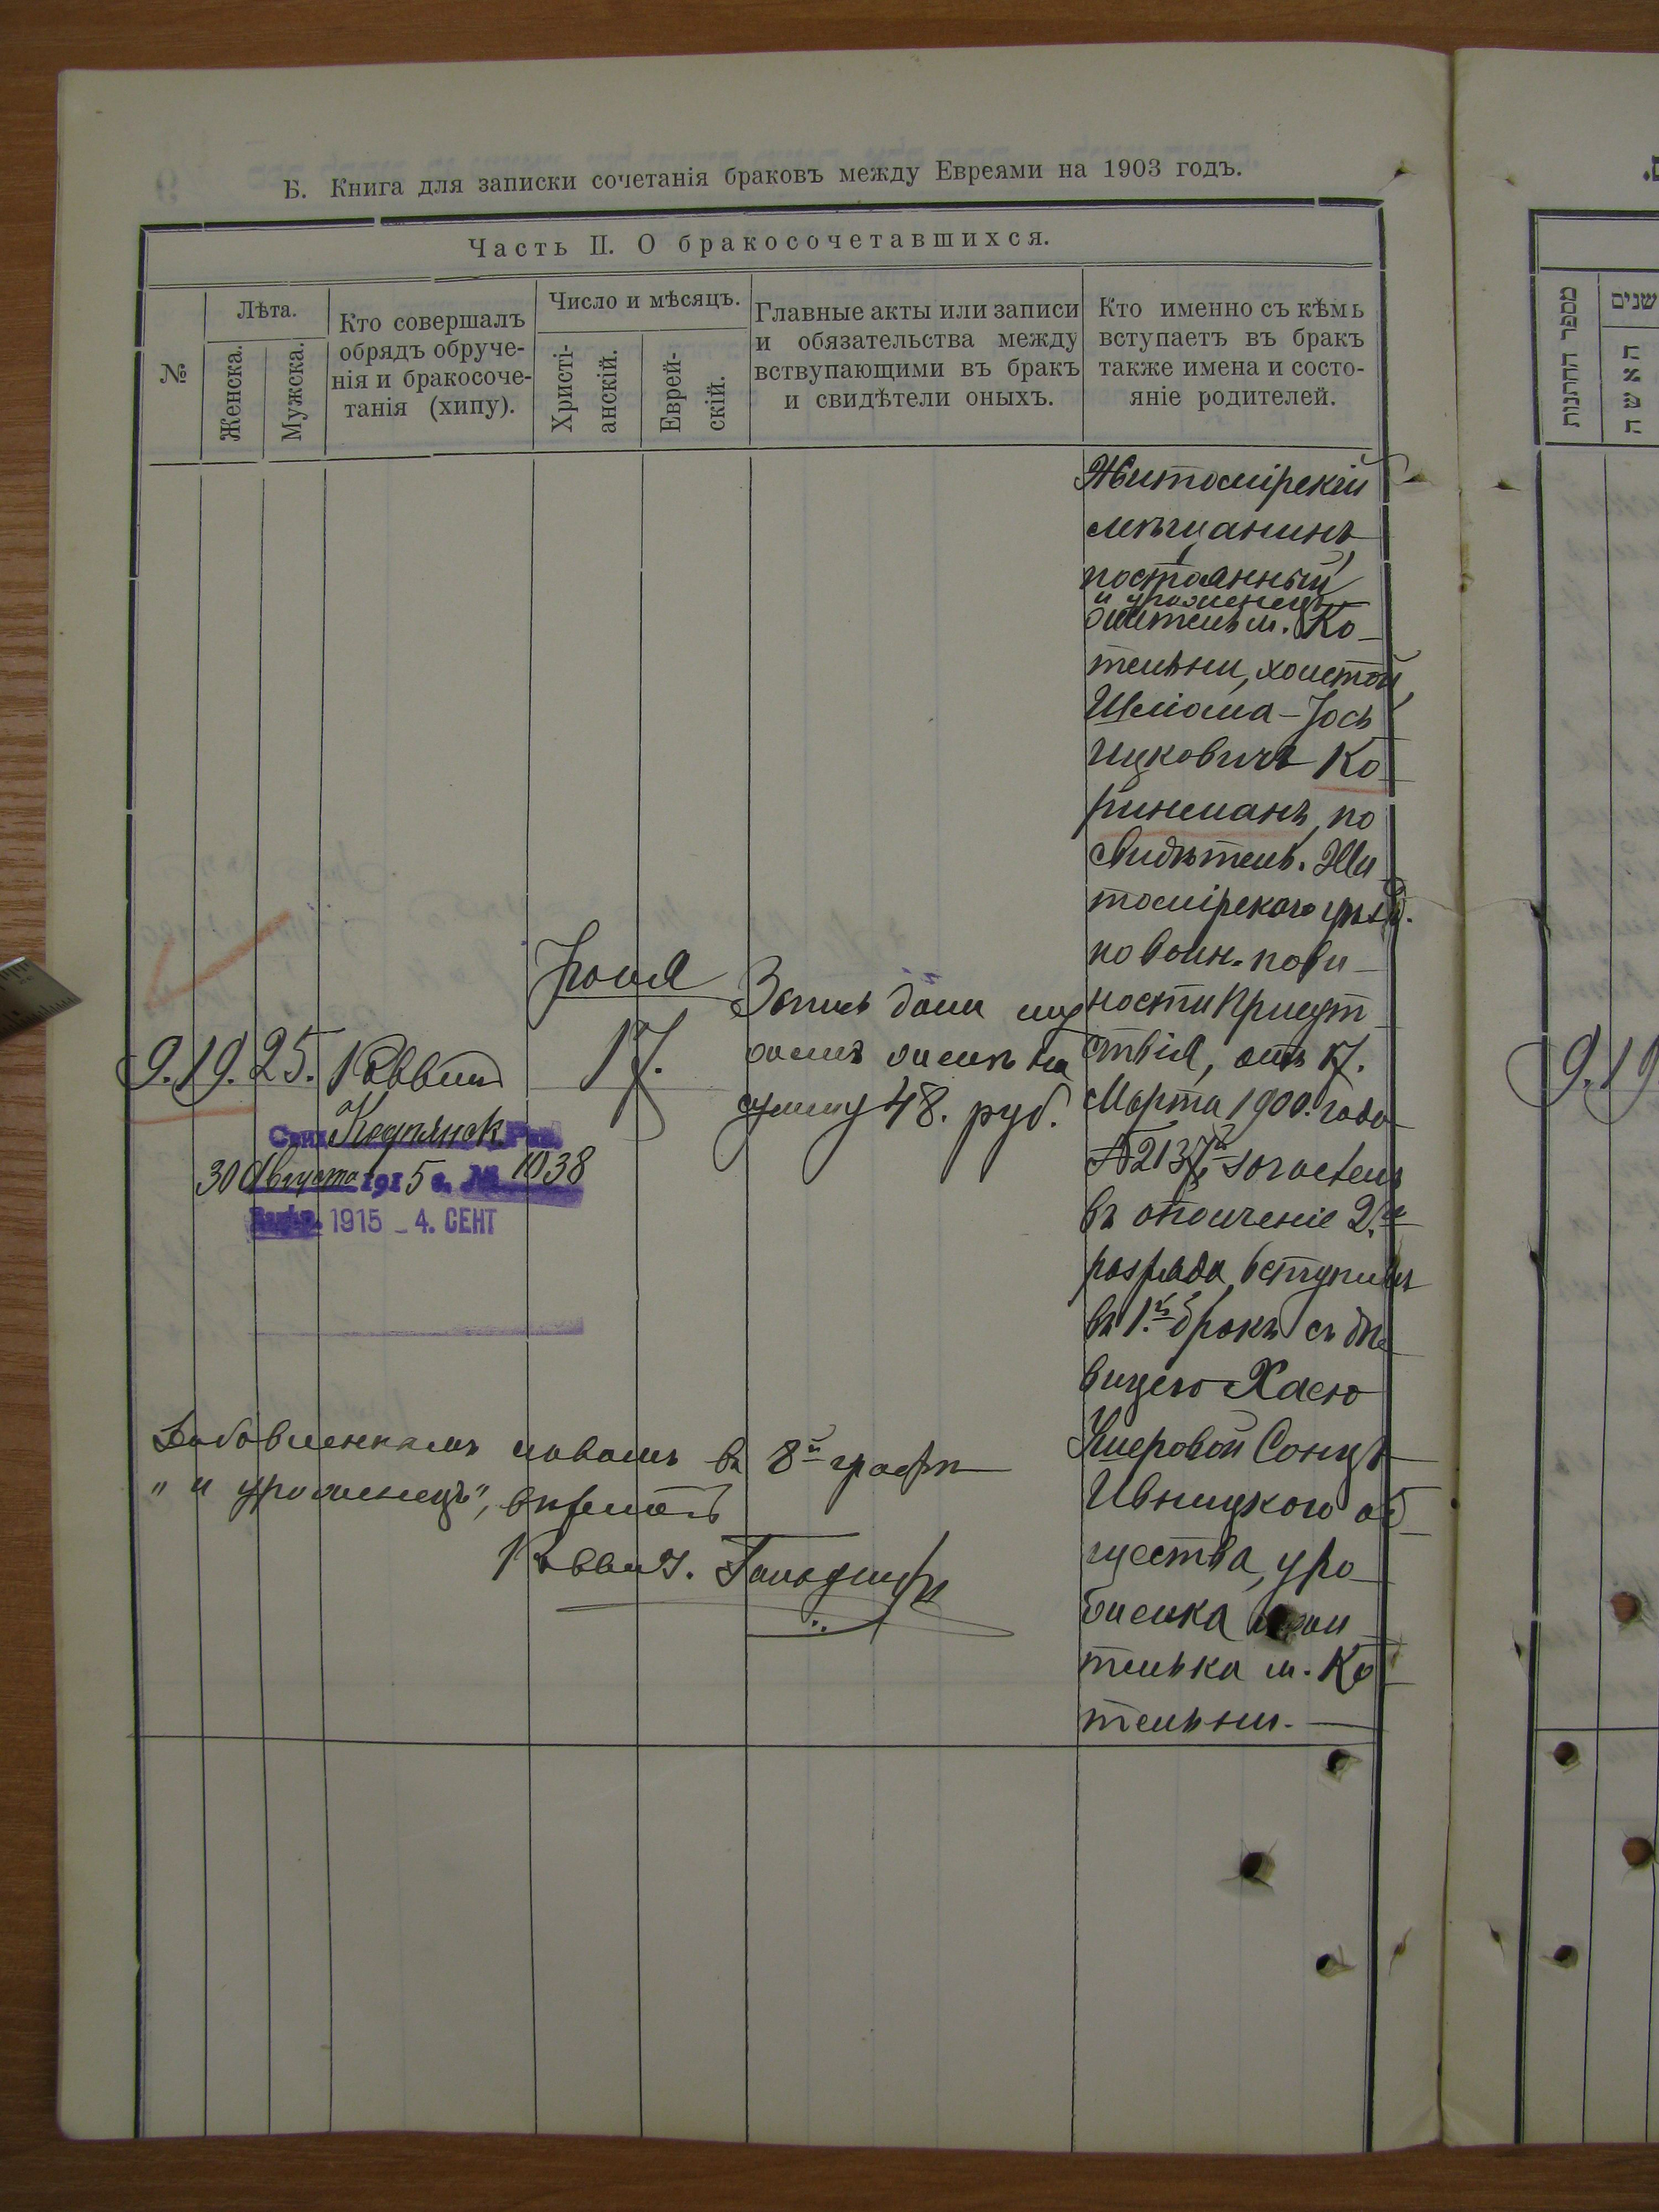 Б. Книга для записки сочетанія браковъ между Евреями на 1903 годъ.
Часть II. О бракосочетавшихся.
№
Лѣта.
Женска.
Мужска.
Кто совершалъ
обрядъ обруче-
нія и бракосоче-
танія (хипу).
Число и мѣсяцъ.
Христі-
анскій.
Еврей-
скій.
Главные акты или записи
и обязательства между
вствупающими въ бракъ
и свидѣтели оныхъ.
Кто именно съ кѣмъ
вступаетъ въ бракъ
также имена и состо-
яніе родителей.
9. 19. 25. Раввин
Іюня
17.
Запись дана
на
сумму 48. руб.
Житомірскій
мѣщанинъ,
постоянный
и уроженецъ
житель м. Ко-
тельни, холостой
Шліома-Іось
Ицковичъ Ко
ринманъ, по
свидѣтель. Жи
томірскаго уѣзд.
по воин. пови-
ности Присут
ствія, отъ 17.
Марта 1900. года
въ ополченіе 2.
разряда, вступилъ
въ 1.й бракъ съ дѣ
вицею Хасею
Сонцъ
Ивницкого об
щества, уро
женка жи
телька м. Ко
тельни.
30 Августа 1915 г. № 1038
1915 - 4. СЕНТ
въ 8й графѣ
" и уроженецъ", вѣрно
Раввин.
מספר החתונות
שנים
האשה
9. 19